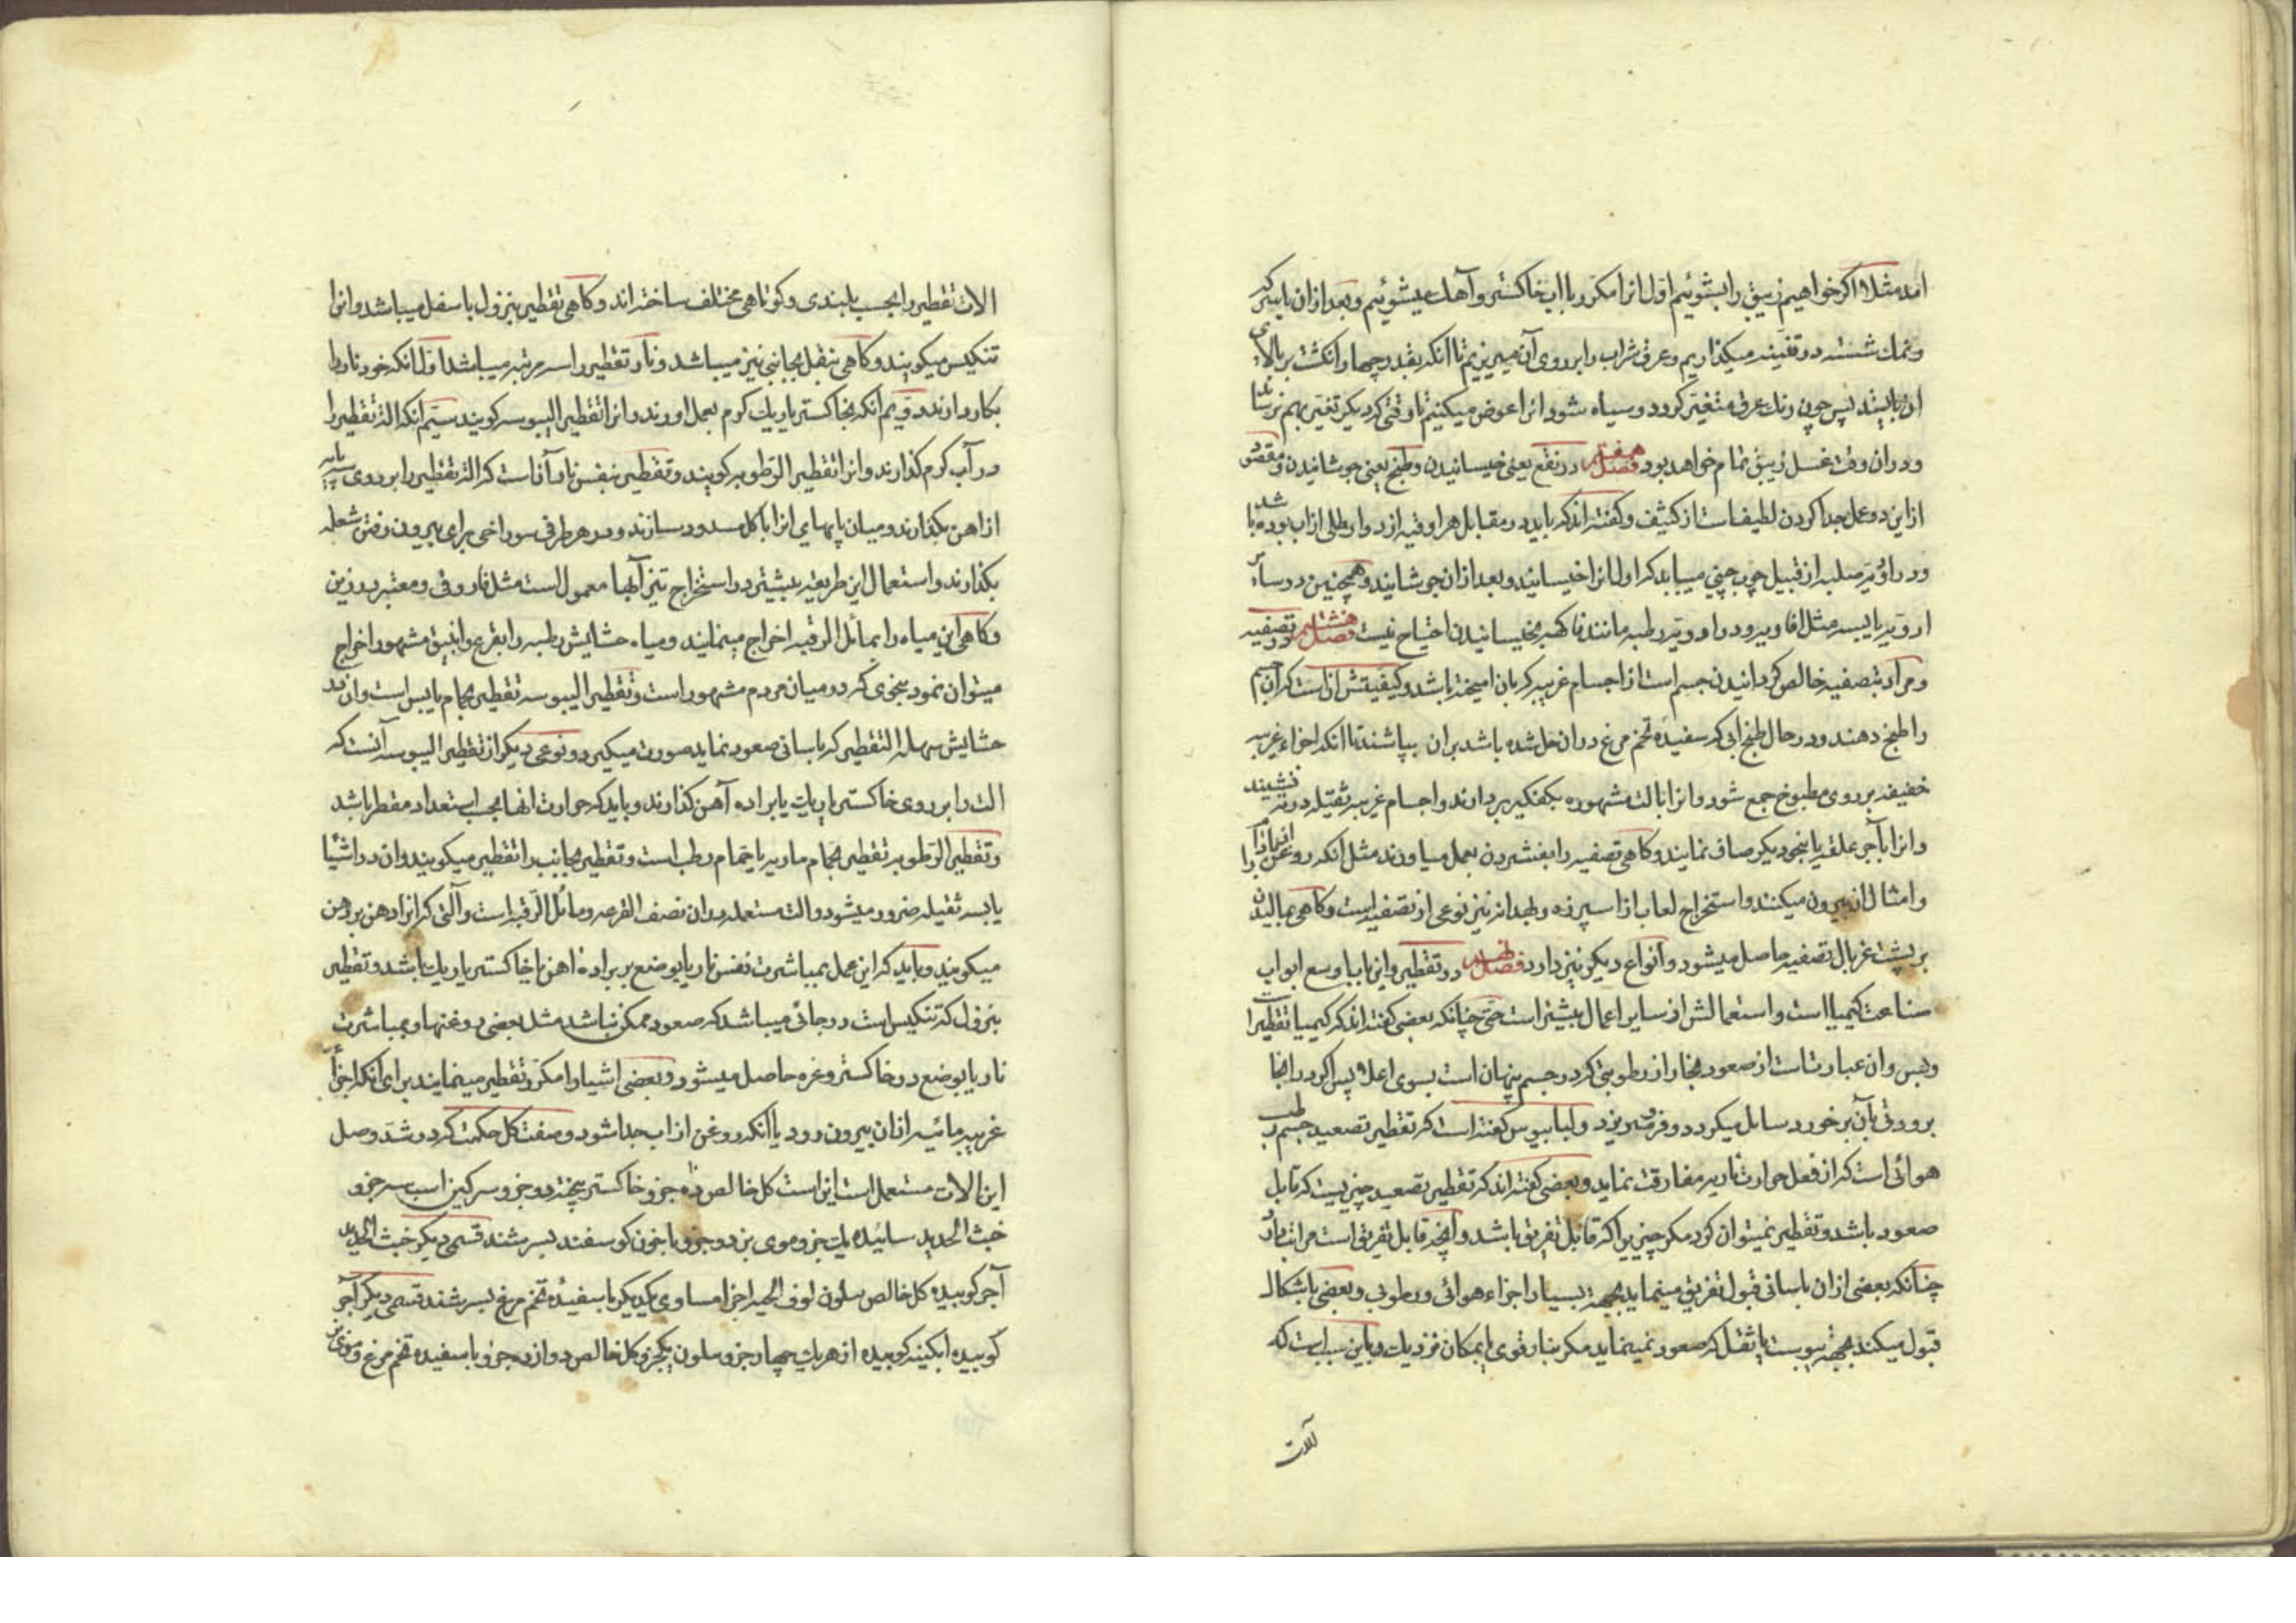 امد مثلا اکر خواهیم زیبق را بشوئیم اول انرا مکرر با اب خاکستر و آهک میشوئیم و بعد ازان با سرکه
و نمک شسته در قنینه میکذاریم و عرق شراب را بر روی آن میریزیم تا انکه بقدر چهار انکشت بر بالای
ان بایستد پس چون رنک عرق متغیر کردد و سیاه شود انرا عوض میکنیم تا وقتی که دیکر تغیر بهم نرساند
و دران وقت غسل زیبق تمام خواهد بود فصل هفتم در نقع یعنی خیسانیدن و طبخ یعنی جوشانیدن و مقصود
از این دو عمل جدا کردن لطیف است از کثیف و کفته اند که باید در مقابل هر اوقیه از دوا رطلی از اب بوده باشد
و در ادویه صلبه از قبیل چوب چینی میباید که اول انرا خیسانیند و بعد ازان جوشانیند و همچنین در سائر
ادویه یابسه مثل افاویه و در ادویه رطبه مانند فاکهه بخیسانیدن احتیاج نیست فصل هشتم در تصفیه
و مراد بتصفیه خالص کردانیدن جسم است از اجسام غریبه که بان امیخته باشد و کیفیتش ان است که آن جسم
را طبخ دهند و در حال طبخ ابی که سفیده تخم مرغ دران حل شده باشد بران بپاشند تا انکه اجزاء غریبه
خفیفه بر روی مطبوخ جمع شود و انرا بالت مشهوره بکفکیر بردارند و اجسام غریبه ثقیله در ته نشیند
و انرا بآجر علقه یا بنحو دیکر صاف نمایند و کاهی تصفیه را بفشردن بعمل میاورند مثل انکه روغن بادام را
و امثال ان بیرون میکنند و استخراج لعاب از اسپرزه و بهدانه نیز نوعی از تصفیه است و کاهی بمالیدن
بر پشت غربال تصفیه حاصل میشود و انواع دیکر نیز دارد فصل نهم در تقطیر و این باب اوسع ابواب
صناعت کیمیا است و استعمالش از سایر اعمال بیشتر است حتی چنانکه بعضی کفته اند که کیمیا تقطیر است
و بس و ان عبارتست از صعود بخار از رطوبتی که در جسم پنهان است بسوی اعلا پس اکر در انجا
برودتی بآن بر خورد سایل میکردد و فرو میریزد و لیبابیوس کفته است که تقطیر تصعید جسم رطب
هوائی است که از فعل حرارت ناریه مفارقت نماید و بعضی کفته اند که تقطیر تصعید چیزیست که قابل
صعود باشد و تقطیر نمیتوان کرد مکر چیزیرا که قابل تفریق باشد و آنچه قابل تفریق است مراتب دارد
چنانکه بعضی ازان باسانی قبول تفریق مینماید بجهة بسیار اجزاء هوائی و رطوبی و بعضی باشکال
قبول میکند بجهة یبوست یا ثقل که صعود نمینماید مکر بنار قوی یا بمکان نزدیک و باین سبب است که
آلات
الات تقطیر را بحسب بلندی و کوتاهی مختلف ساخته اند و کاهی تقطیر بنزول باسفل میباشد و انرا
تنکیس میکویند و کاهی بنقل بجانبی نیز میباشد و نار تقطیر را سه مرتبه میباشد اول انکه خود نار را
بکار دارند دویم انکه بخاکستر یا ریک کرم بعمل اورند و انرا تقطیر الیبوسه کویند سیم انکه الة تقطیر را
در آب کرم کذارند و انرا تقطیر الرطوبه کویند و تقطیر بنفس نار آن است که الة تقطیر را بر روی سه پایه
از اهن بکذارند و میان پایهای انرا با کل مسدود سازند و در هر طرفی سوراخی برای بیرون رفتن شعله
بکذارند و استعمال این طریقه بیشتر در استخراج تیز آبها معمول است مثل فاروقی و معتبر درزین
و کاهی این میاه را بمائل الرقبه اخراج مینمایند و میاه حشایش رطبه را بقرع و انبیق مشهور اخراج
میتوان نمود بنحوی که در میان مردم مشهور است و تقطیر الیبوسه تقطیر بحمام یابس است و ان در
حشایش سهله التقطیر که باسانی صعود نماید صورت میکیرد و نوعی دیکر از تقطیر الیبوسه آنست که
الت را بر روی خاکستر یا ریک یا براده آهن کذارند و باید که حرارت انها بحسب استعداد مقطر باشد
و تقطیر الرطوبه تقطیر بحمام ماریه یا حمام رطب است و تقطیر بجانب را تقطیر میکویند و ان در اشیا
یابسه ثقیله ضرور میشود و الت مستعمله دران نصف القرعه و مائل الرقبه است و آلتی که انرا دهن بر دهن
میکویند و باید که این عمل بمباشرت نفس نار یا بوضع بر براده اهن یا خاکستر یا ریک باشد و تقطیر
بنزول که تنکیس است در جائی میباشد که صعود ممکن نباشد مثل بعضی روغنها و بمباشرت
نار یا بوضع در خاکستر و غره حاصل میشود و بعضی اشیا را مکرر تقطیر مینمایند برای انکه اجزأ
غریبه مائیه ازان بیرون رود یا انکه روغن از اب جدا شود و صفت کل حکمت که در شد وصل
این الات مستعمل است این است کل خالص ده جزو خاکستر بیخته دو جزو سرکین اسب سه جزو
خبث الحدید سائیده یک جزو موی بز دو جزو با خون کوسفند بسرشند قسمی دیکر خبث الحدید
آجر کوبیده کل خالص سلون لوف الحیه اجزا مساوی یکدیکر با سفیده تخم مرغ بسرشند قسمی دیکر آجر
کوبیده ابکینه کوبیده از هر یک چهار جزو سلون یکجزو کل خالص دوازده جزو با سفیده تخم مرغ و موی بز